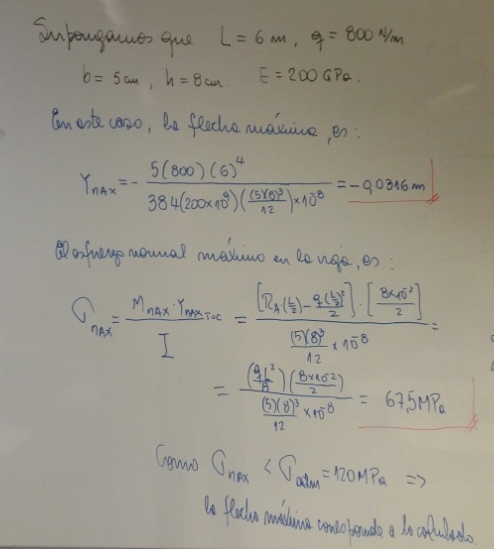 Supongamos que L = 6 m, q = 800 N/m
b = 5 cm, h = 8 cm. E = 200 GPa.
En este caso, la flecha máxima, es:
Y_MAX = - 5(800)(6)^4 / 384(200×10^9)((5)(8)^3/12)×10^-8 = -0,0316 m
El esfuerzo normal máximo en la viga, es:
σ_MAX = M_MAX · Y_MAX T=C / I = [R_A(L/2) - q(L/2)^2/2] · [8×10^-2/2] / (5)(8)^3/12 × 10^-8 =
= (qL^2/8)(8×10^-2/2) / (5)(8)^3/12 × 10^-8 = 67,5 MPa
Como σ_MAX < σ_adm = 120 MPa =>
la flecha máxima corresponde a la calculada.